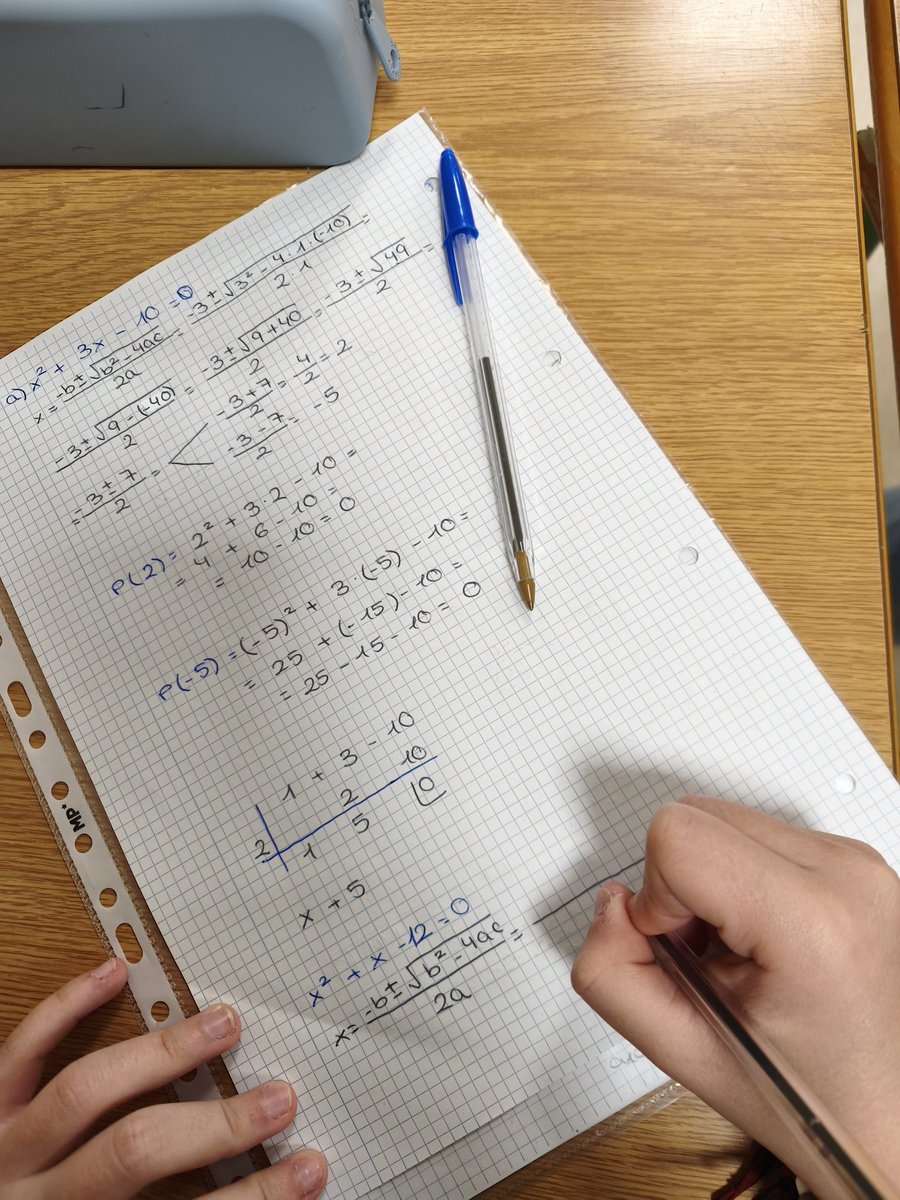 a) x² + 3x - 10 = 0
x = -b ± √b² - 4ac / 2a = -3 ± √3² - 4 · 1 · (-10) / 2 · 1 =
-3 ± √9 - (-40) / 2 = -3 ± √9 + 40 / 2 = -3 ± √49 / 2 =
= -3 ± 7 / 2 = < -3 + 7 / 2 = 4 / 2 = 2
-3 - 7 / 2 = -5
P(2) = 2² + 3 · 2 - 10 =
= 4 + 6 - 10 =
= 10 - 10 = 0
P(-5) = (-5)² + 3 · (-5) - 10 =
= 25 + (-15) - 10 =
= 25 - 15 - 10 = 0
1 + 3 - 10
2 10
2 1 5 0
x + 5
x² + x - 12 = 0
x = -b ± √b² - 4ac / 2a =
MP